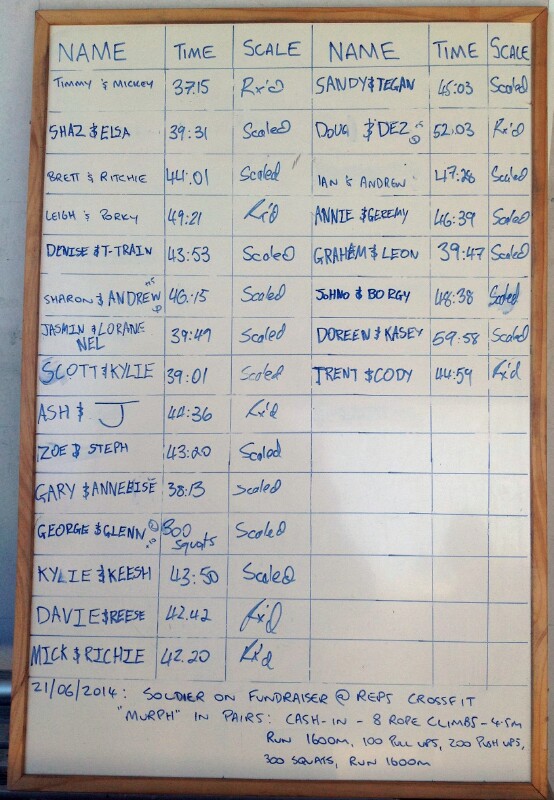 NAME TIME SCALE NAME TIME SCALE
TIMMY & MICKEY 37.15 Rx'd SANDY & TEGAN 45:03 Scaled
SHAZ & ELSA 39:31 Scaled DOUG & DEZ 52.03 Rx'd
BRETT & RITCHIE 44:01 Scaled IAN & ANDREW 47:28 Scaled
LEIGH & PORKY 49:21 Rx'd ANNIE & GEREMY 46:39 Scaled
DENISE & T-TRAIN 43:53 Scaled GRAHAM & LEON 39:47 Scaled
SHARON & ANDREW 46:15 Scaled JOHNO & BORGY 48:38 Scaled
JASMIN & LORANE
NEL 39:49 Scaled DOREEN & KASEY 59:58 Scaled
SCOTT & KYLIE 39:01 Scaled TRENT & CODY 44:59 Rx'd
ASH & J 44:36 Rx'd
ZOE & STEPH 43:20 Scaled
GARY & ANNELISE 38:13 Scaled
GEORGE & GLENN 800
Squats Scaled
KYLIE & KEESH 43:50 Scaled
DAVIE & REESE 42.42 Rx'd
MICK & RICHIE 42.20 Rx'd
21/06/2014: SOLDIER ON FUNDRAISER @ REPS CROSSFIT
"MURPH" IN PAIRS: CASH-IN - 8 ROPE CLIMBS - 4.5M
RUN 1600M, 100 PULL UPS, 200 PUSH UPS,
300 SQUATS, RUN 1600M